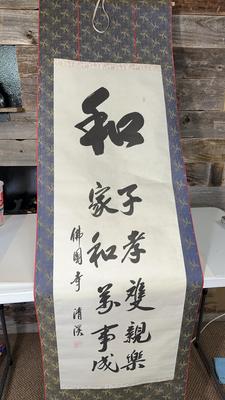 和
子孝雙親樂
家和萬事成
佛國寺 清渓